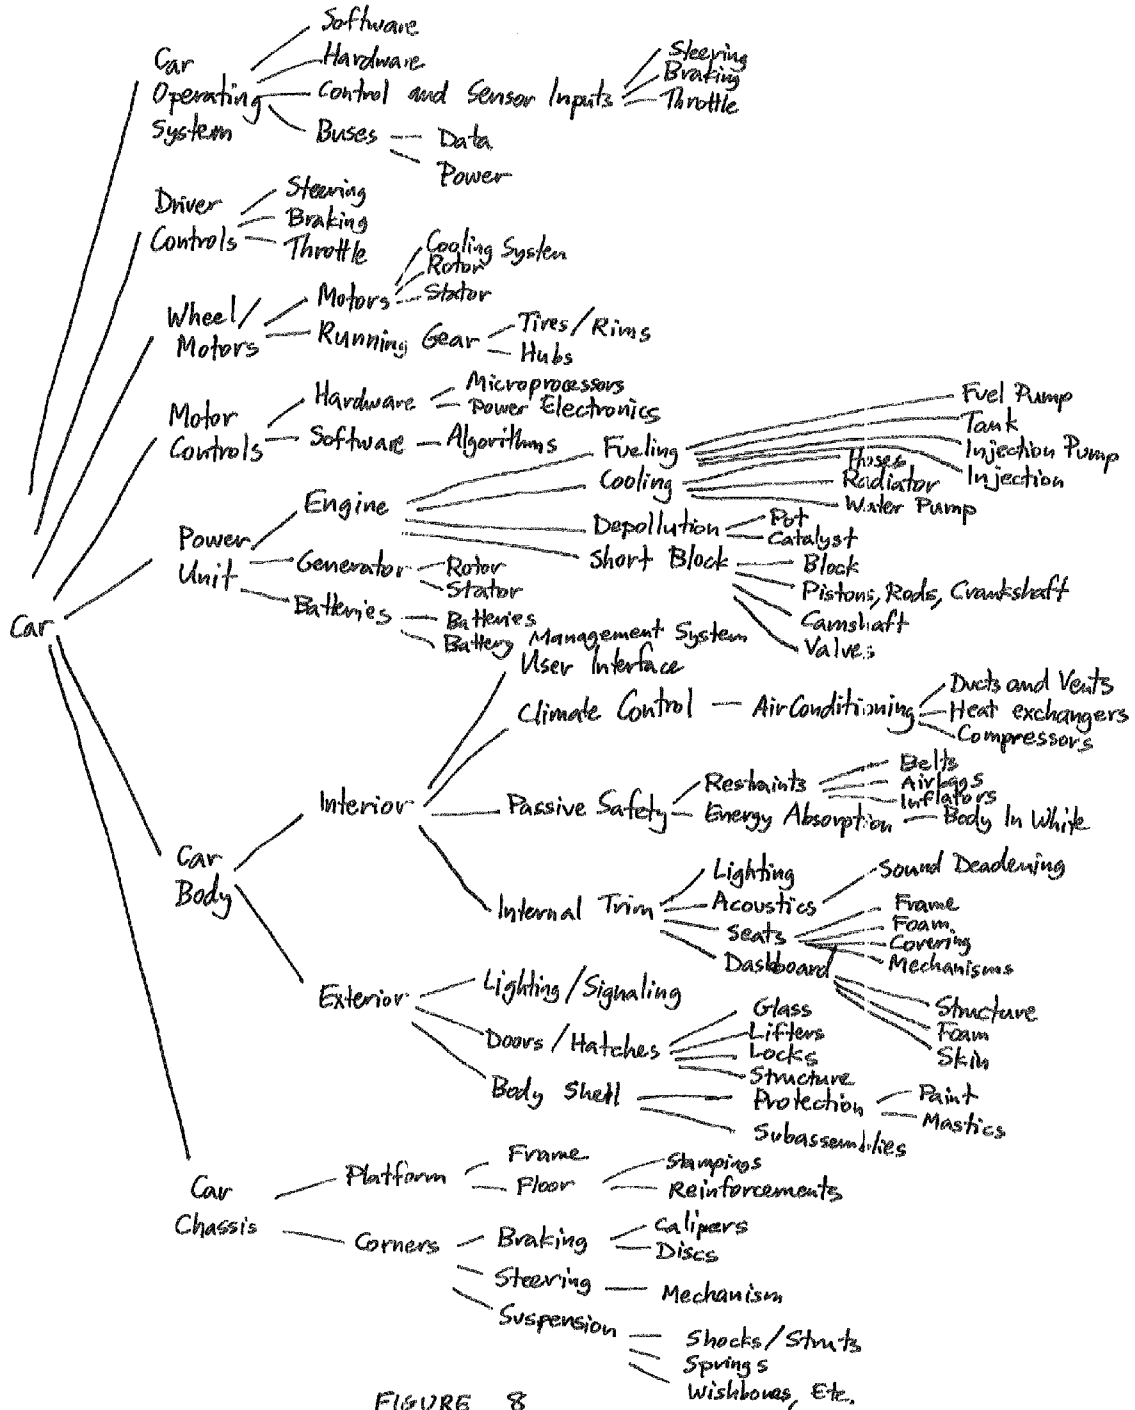 Software
Hardware
Car
Operating
System
Control and Sensor Inputs
Steering
Braking
Throttle
Buses
Data
Power
Driver
Controls
Steering
Braking
Throttle
Wheel/
Motors
Motors
Cooling System
Rotor
Stator
Running Gear
Tires/Rims
Hubs
Motor
Controls
Hardware
Microprocessors
Power Electronics
Software
Algorithms
Power
Unit
Engine
Fueling
Fuel Pump
Tank
Injection Pump
Injection
Cooling
Hoses
Radiator
Water Pump
Depollution
Pot
Catalyst
Short Block
Block
Pistons, Rods, Crankshaft
Camshaft
Valves
Generator
Rotor
Stator
Batteries
Batteries
Battery Management System
Car
Car
Body
Interior
User Interface
Climate Control
Air Conditioning
Ducts and Vents
Heat exchangers
Compressors
Passive Safety
Restraints
Belts
Airbags
Inflators
Energy Absorption
Body In White
Internal Trim
Lighting
Acoustics
Sound Deadening
Seats
Frame
Foam
Covering
Mechanisms
Dashboard
Structure
Foam
Skin
Exterior
Lighting/Signaling
Doors/Hatches
Glass
Lifters
Locks
Structure
Body Shell
Protection
Paint
Mastics
Subassemblies
Car
Chassis
Platform
Frame
Floor
Stampings
Reinforcements
Corners
Braking
Calipers
Discs
Steering
Mechanism
Suspension
Shocks/Struts
Springs
Wishbones, Etc.
FIGURE 8